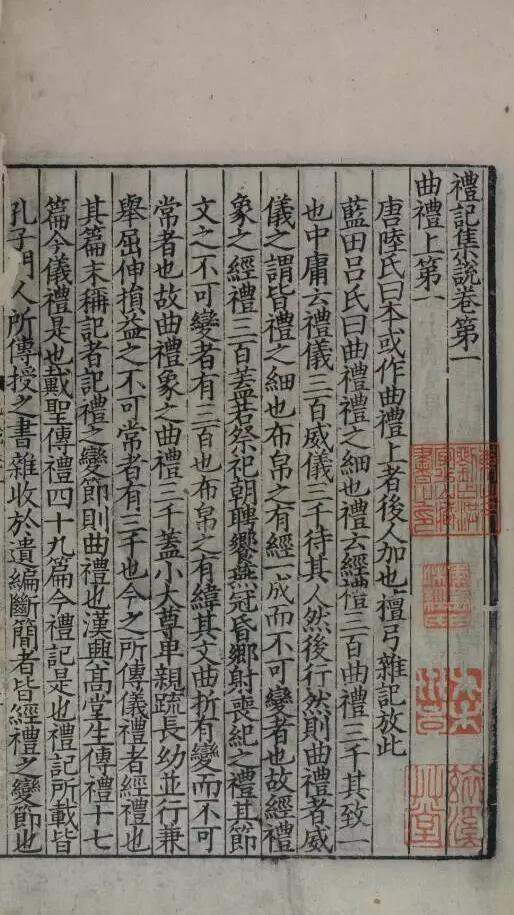 禮記集說卷第一
曲禮上第一
唐陸氏曰本或作曲禮上者後人加也檀弓雜記放此
藍田呂氏曰曲禮禮之細也禮云經禮三百曲禮三千其致一
也中庸云禮儀三百威儀三千待其人然後行然則曲禮者威
儀之謂皆禮之細也布帛之有經一成而不可變者也故經禮
象之經禮三百蓋若祭祀朝聘饗燕冠昏鄉射喪紀之禮其節
文之不可變者有三百也布帛之有緯其文曲折有變而不可
常者也故曲禮象之曲禮三千蓋小大尊卑親疏長幼並行兼
舉屈伸損益之不可常者有三千也今之所傳儀禮者經禮也
其篇末稱記者記禮之變節則曲禮也漢興髙堂生傳禮十七
篇今儀禮是也戴聖傳禮四十九篇今禮記是也禮記所載皆
孔子門人所傳授之書雜收於遺編斷簡者皆經禮之變節也